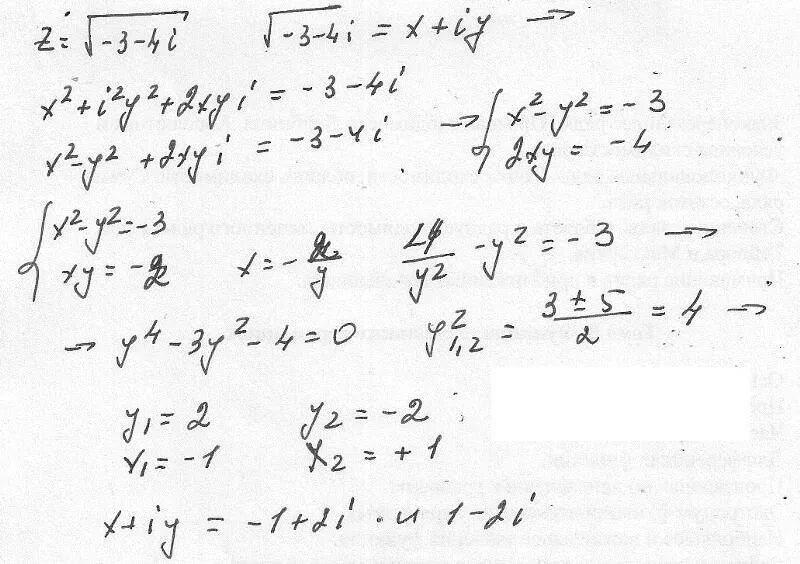 z = √(-3-4i)    √(-3-4i) = x+iy →
x² + i²y² + 2xyi = -3-4i
x² - y² + 2xyi = -3-4i → { x² - y² = -3
2xy = -4
{ x² - y² = -3
xy = -2    x = -2/y    4/y² - y² = -3 →
→ y⁴ - 3y² - 4 = 0    y²₁,₂ = (3 ± 5)/2 = 4 →
y₁ = 2    y₂ = -2 ;
x₁ = -1    x₂ = +1
x+iy = -1+2i и 1-2i